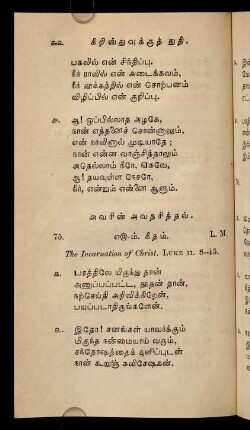 கிறிஸ்துவுக்குத் துதி.
பகலில் என் சிந்திப்பு,
நீர் ராவில் என் அடைக்கலம்,
நீர் தூக்கத்தில் என் சொற்பனம்
விழிப்பில் என் குறிப்பு.
௬. ஆ! ஒப்பில்லாத அழகே,
நான் எத்தனை சொன்னாலும்,
என் நாவினால் முடியாதே;
நான் என்ன வாஞ்சித்தாலும்
அதெல்லாம் நீரே, ஏசுவே,
ஆ! தயவுள்ள நேசரே,
நீர், என்றும் என்னை ஆளும்.
அவரின் அவதரித்தல்.
75. எ௫-ம். கீதம். L. M.
The Incarnation of Christ. LUKE II. 8--15.
௧. பரத்திலே யிருந்து தான்
அனுப்பப்பட்ட, தூதன் நான்,
நற்செய்தி அறிவிக்கிறேன்,
பயப்படாதிருங்களேன்.
௨. இதோ! சனங்கள் யாவர்க்கும்
மிகுந்த நன்மையாய் வரும்,
சந்தோஷத்தைக் களிப்புடன்
நான் கூறும் சுவிசேஷகன்.